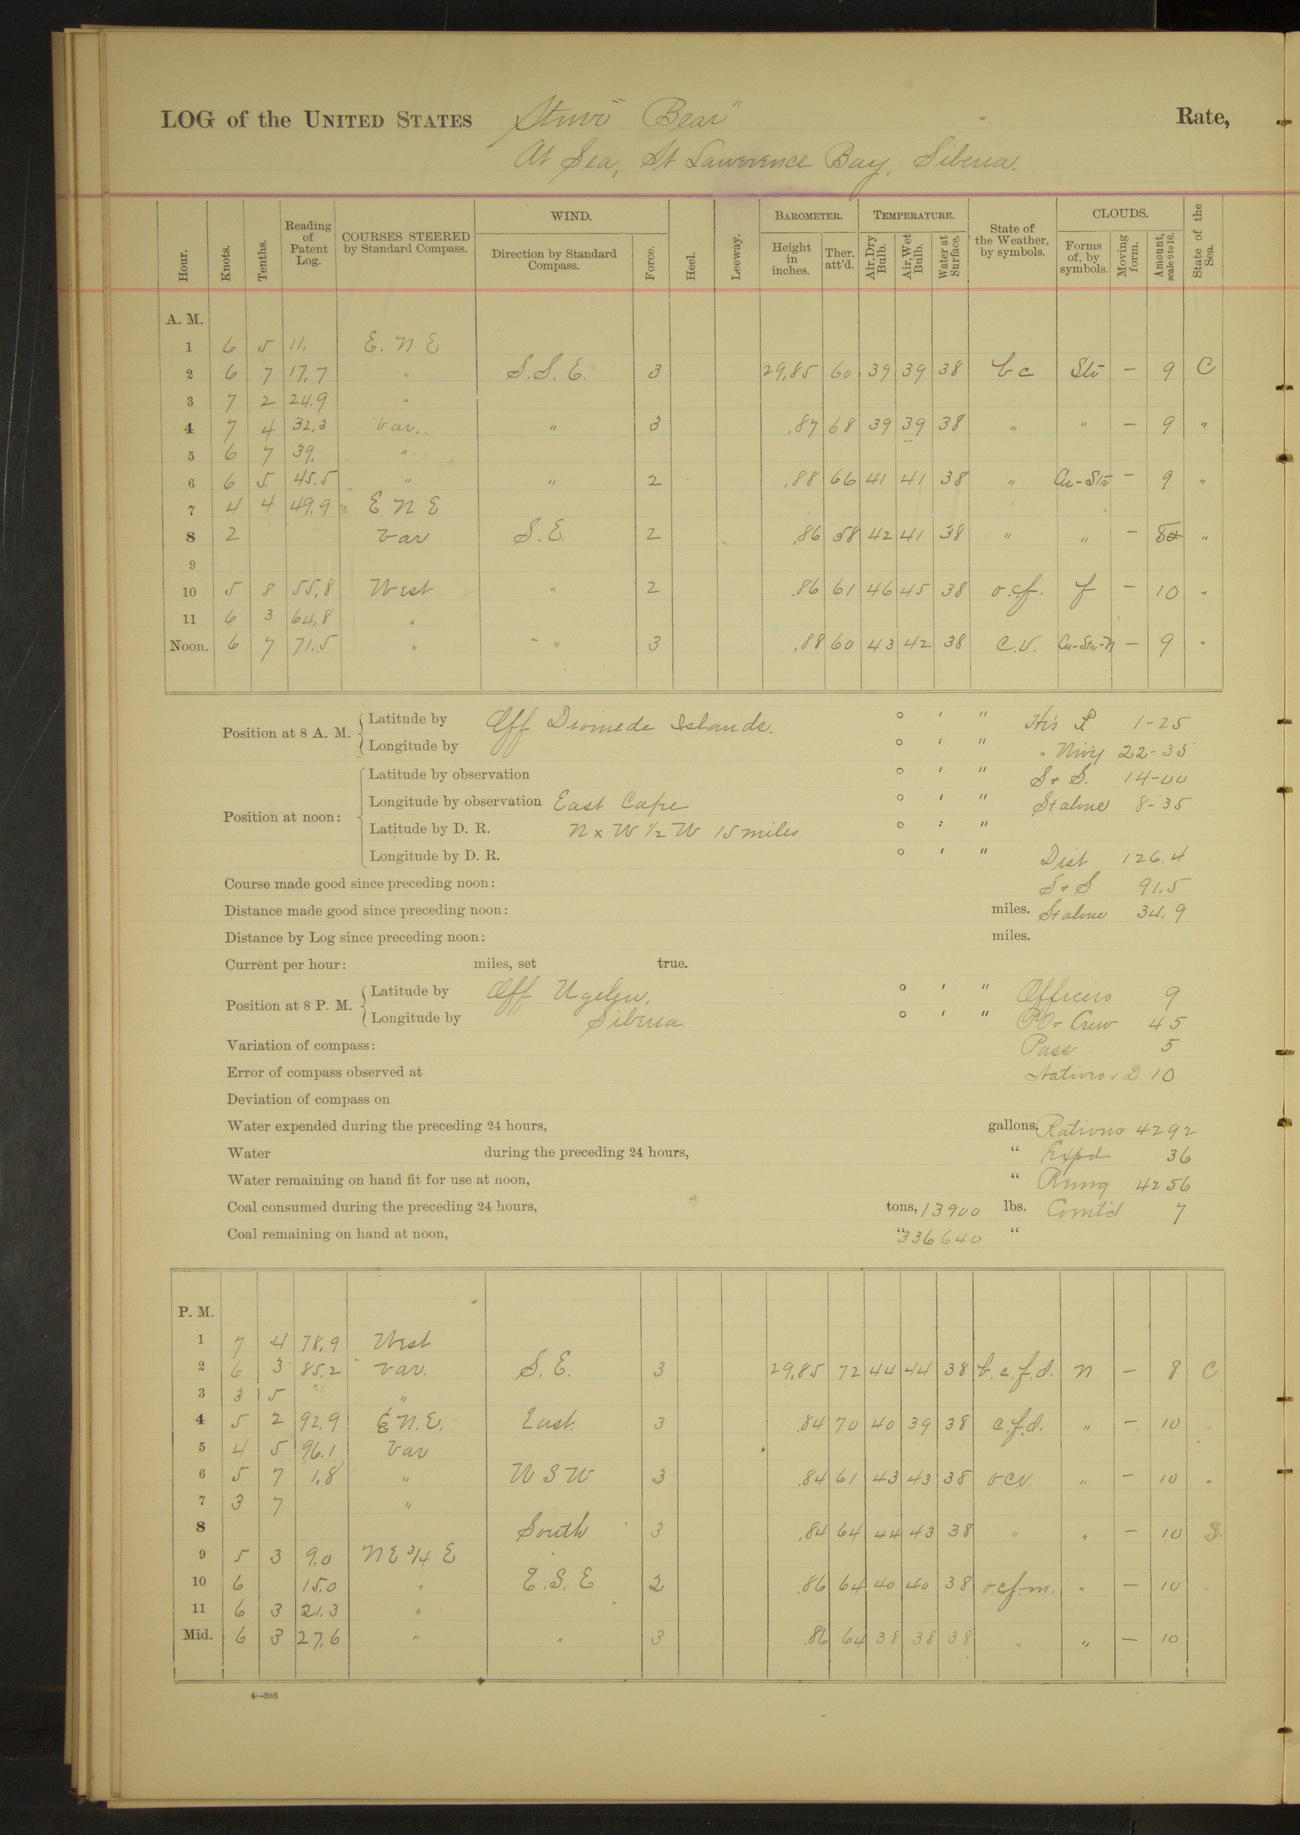 LOG of the UNITED STATES Stmr "Bear" Rate,
At Sea, St Lawerence Bay, Siberia.
Hour. Knots. Tenths. Reading of Patent Log. COURSES STEERED by Standard Compass. WIND. Direction by Standard Compass. Force. Heel. Leeway. BAROMETER. Height in inches. Ther. att'd. TEMPERATURE. Air, Dry Bulb. Air, Wet Bulb. Water at Surface. State of the Weather, by symbols. CLOUDS. Forms of, by symbols. Moving form. Amount, scale 0 to 10. State of the Sea.
A. M.
1 6 5 11. E. N E
2 6 7 17.7 " S. S. E. 3 29.85 60 39 39 38 b c Str — 9 C
3 7 2 24.9 "
4 7 4 32.3 Var. " 3 .87 68 39 39 38 " " — 9 "
5 6 7 39. "
6 6 5 45.5 " " 2 .88 66 41 41 38 " Cu-Str — 9 "
7 4 4 49.9 E N E
8 2 Var S. E. 2 .86 58 42 41 38 " " — 8 "
9
10 5 8 55.8 West " 2 .86 61 46 45 38 o.c.f. f — 10 "
11 6 3 64.8 "
Noon. 6 7 71.5 " " 3 .88 60 43 42 38 c.v. Cu-Str-N — 9 "
Position at 8 A. M. Latitude by Off Diomede Islands. ° ' " Hrs 1-25
Longitude by ° ' " " Nvig 22-35
Position at noon: Latitude by observation ° ' " S & S. 14-00
Longitude by observation East Cape ° ' " St alone 8-35
Latitude by D. R. N x W 1/2 W 15 miles ° ' "
Longitude by D. R. ° ' " Dist 126.4
Course made good since preceding noon: S & S 91.5
Distance made good since preceding noon: miles. St alone 34.9
Distance by Log since preceding noon: miles.
Current per hour: miles, set true.
Position at 8 P. M. Latitude by Off Ugelen, ° ' " Officers 9
Longitude by Siberia ° ' " Crew 45
Variation of compass: Pass. 5
Error of compass observed at Natives & D 10
Deviation of compass on
Water expended during the preceding 24 hours, gallons. Rations 4292
Water during the preceding 24 hours, " Expd 36
Water remaining on hand fit for use at noon, " Remg 4256
Coal consumed during the preceding 24 hours, tons, 13900 lbs. Comt'd 7
Coal remaining on hand at noon, " 336640 "
P. M.
1 7 4 78.9 West
2 6 3 85.2 Var. S. E. 3 29.85 72 44 44 38 b.c.f.d. N — 8 C
3 3 5 "
4 5 2 92.9 E N.E. East. 3 .84 70 40 39 38 c.f.d. " — 10 "
5 4 5 96.1 Var
6 5 7 1.8 " W S W 3 .84 61 43 43 38 o c v. " — 10 "
7 3 7 "
8 South 3 .84 64 44 43 38 " " — 10 S
9 5 3 9.0 N E 3/4 E
10 6 15.0 " E. S. E 2 .86 64 40 40 38 o.c.f.m. " — 10
11 6 3 21.3 "
Mid. 6 3 27.6 " " 3 .86 64 38 38 38 " " — 10
4—285